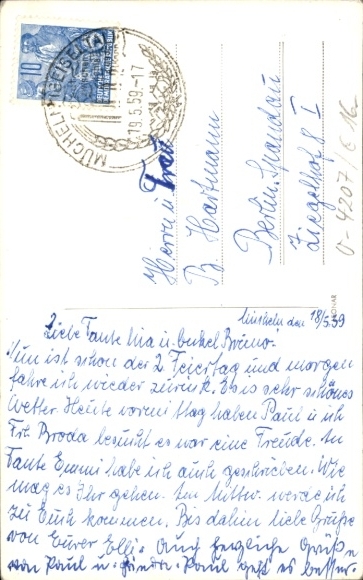 10
MÜCHELN (GEISELTAL)
19.5.59.-17
Herrn u. Frau
B. Hartmann
Berlin-Spandau
Ziegelhof 8 I
Mücheln den 18/5.59
Liebe Tante Mia u. Onkel Bruno.
Nun ist schon der 2. Feiertag und morgen
fahre ich wieder zurück. Es is sehr schönes
Wetter. Heute vormittag haben Paul u. ich
Frt. Broda besucht es war eine Freude. An
Tante Emmi habe ich auch geschrieben. Wie
mag es Ihr gehen. Am Mittw. werde ich
zu Euch kommen. Bis dahin liebe Grüße
von Eurer Elli. Auch herzliche Grüße
von Paul u. Paul geht es besser.